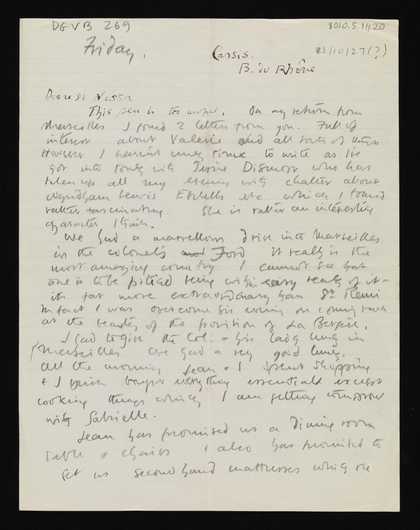 DGVB 269
8010.5.1120
Friday.
Cassis.
B. du Rhône
21/10/27(?)
Dearest Nessa
This pen is the worst. On my return from
Marseilles I found 2 letters from you. Full of
interest about Valerie and all sorts of things
However I haven't much time to write as I've
got into touch with Jessie Dismorr who has
taken up all my evening with chatter about
Wyndham Lewis Etchells etc which I found
rather fascinating. She is rather an interesting
character I think.
We had a marvellous drive into Marseilles
in the colonels Ford It really is the
most amazing country I cannot see that
one is to be pitied being within easy reach of it -
it far more extraordinary than St Remi
In fact I was overcome this evening on coming back
at the beauty of the position of La Bergère.
I had to give the Col. & his lady lunch in
Marseilles We had a very good lunch.
All the morning Jean & I spent shopping
& I think bought everything essential except
cooking things which I am getting tomorrow
with Gabrielle.
Jean has promised us a dining room
table & chairs & also has promised to
get us second hand mattresses which he